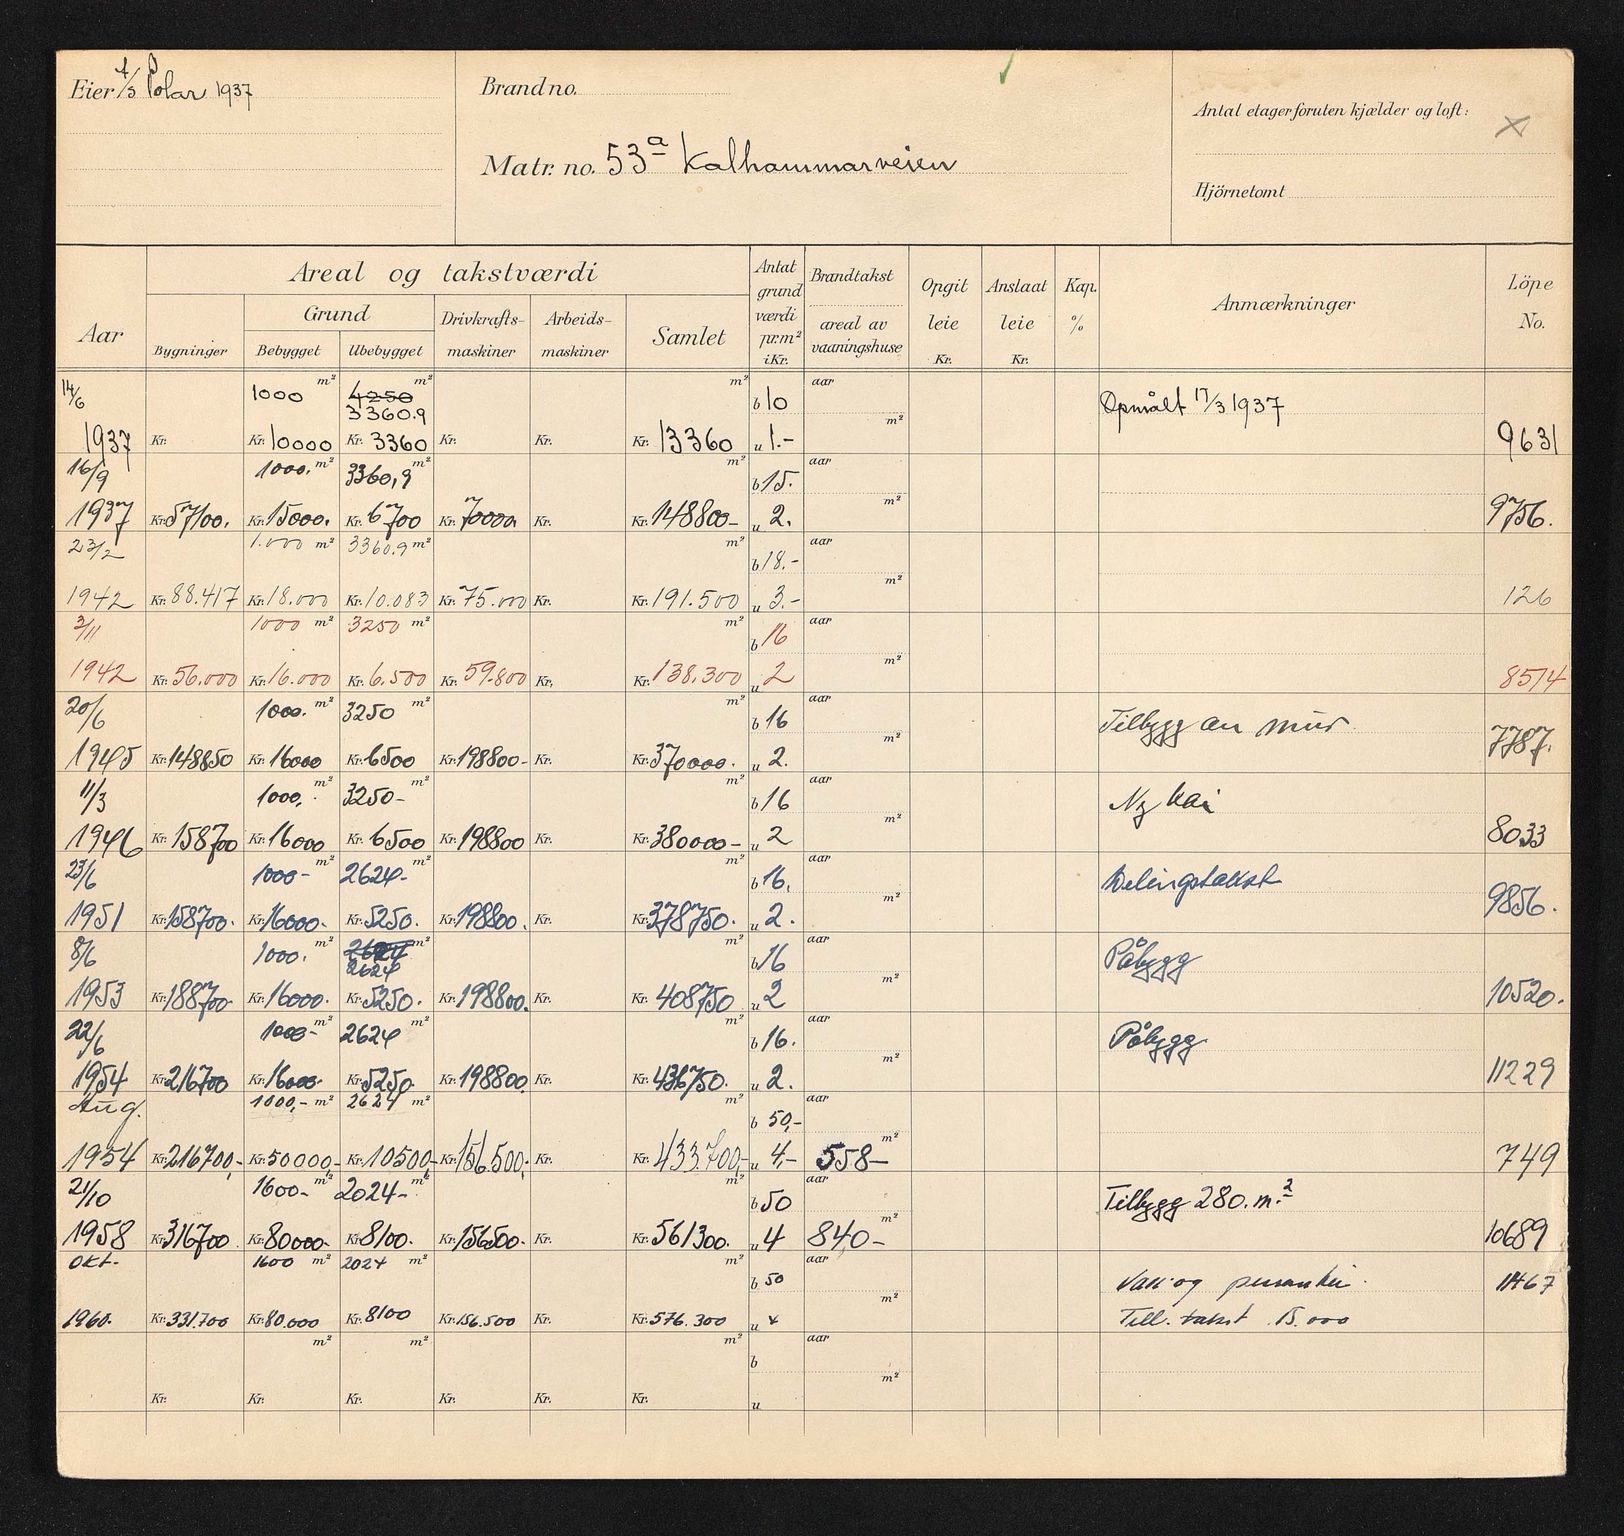 Eier A/S Polar 1937
Brand no.
Matr. no. 53a Kalhammarveien
Antal etager foruten kjælder og loft:
Hjörnetomt
Aar
Areal og takstværdi
Bygninger
Grund
Bebygget
Ubebygget
Drivkrafts-
maskiner
Arbeids-
maskiner
Samlet
Antat
grund
værdi
pr.m²
i Kr.
Brandtakst
areal av
vaaningshuse
Opgit
leie
Kr.
Anslaat
leie
Kr.
Kap.
%
Anmærkninger
Löpe
No.
14/6 1000 m² 4250 m² m² b 10 aar Opmålt 17/3 1937
3360.9
1937 Kr. Kr. 10000 Kr. 3360 Kr. Kr. Kr. 13360 u 1.- m² 9631
16/9 1000. m² 3360,9 m² m² b 15. aar
1937 Kr. 57100. Kr. 15000. Kr. 6700 Kr. 70000 Kr. Kr. 148800- u 2. m² 9756.
23/2 1.000 m² 3360.9 m² m² b 18.- aar
1942 Kr. 88.417 Kr. 18.000 Kr. 10.083 Kr. 75.000 Kr. Kr. 191.500 u 3.- m² 126
3/11 1000 m² 3250 m² m² b 16 aar
1942 Kr. 56.000 Kr. 16.000 Kr. 6.500 Kr. 59.800 Kr. Kr. 138.300 u 2 m² 8514
20/6 1000. m² 3250 m² m² b 16 aar Tilbygg av mur
1945 Kr. 148850 Kr. 16000 Kr. 6500 Kr. 198800- Kr. Kr. 370000. u 2. m² 7787.
11/3 1000, m² 3250- m² m² b 16 aar Ny kai
1946 Kr. 158700 Kr. 16000 Kr. 6500 Kr. 198800 Kr. Kr. 380000- u 2 m² 8033
23/6 1000- m² 2624- m² m² b 16, aar Delingstakst
1951 Kr. 158700. Kr. 16000. Kr. 5250. Kr. 198800. Kr. Kr. 378750. u 2. m² 9856.
8/6 1000. m² 2624 m² m² b 16 aar Påbygg
2624
1953 Kr. 188700- Kr. 16000. Kr. 5250. Kr. 198800. Kr. Kr. 408750 u 2 m² 10520.
22/6 1000- m² 2624 m² m² b 16. aar Påbygg
1954 Kr. 216700 Kr. 16000- Kr. 5250 Kr. 198800 Kr. Kr. 436750. u 2. m² 11229
Aug. 1000,- m² 2624 m² m² b 50,- aar
1954 Kr. 216700,- Kr. 50000,- Kr. 10500- Kr. 156.500,- Kr. Kr. 433.700,- u 4,- 558- m² 749
21/10 1600- m² 2024- m² m² b 50 aar Tilbygg 280. m.²
1958 Kr. 316700 Kr. 80000- Kr. 8100. Kr. 156500- Kr. Kr. 561300. u 4 840- m² 10689
Okt. 1600 m² 2024 m² m² b 50 aar og 11467
1960. Kr. 331.700 Kr. 80.000 Kr. 8100 Kr. 156.500 Kr. Kr. 576.300 u 4 m² Till. takst 15.000
m² m² m² b aar
Kr. Kr. Kr. Kr. Kr. Kr. u m²